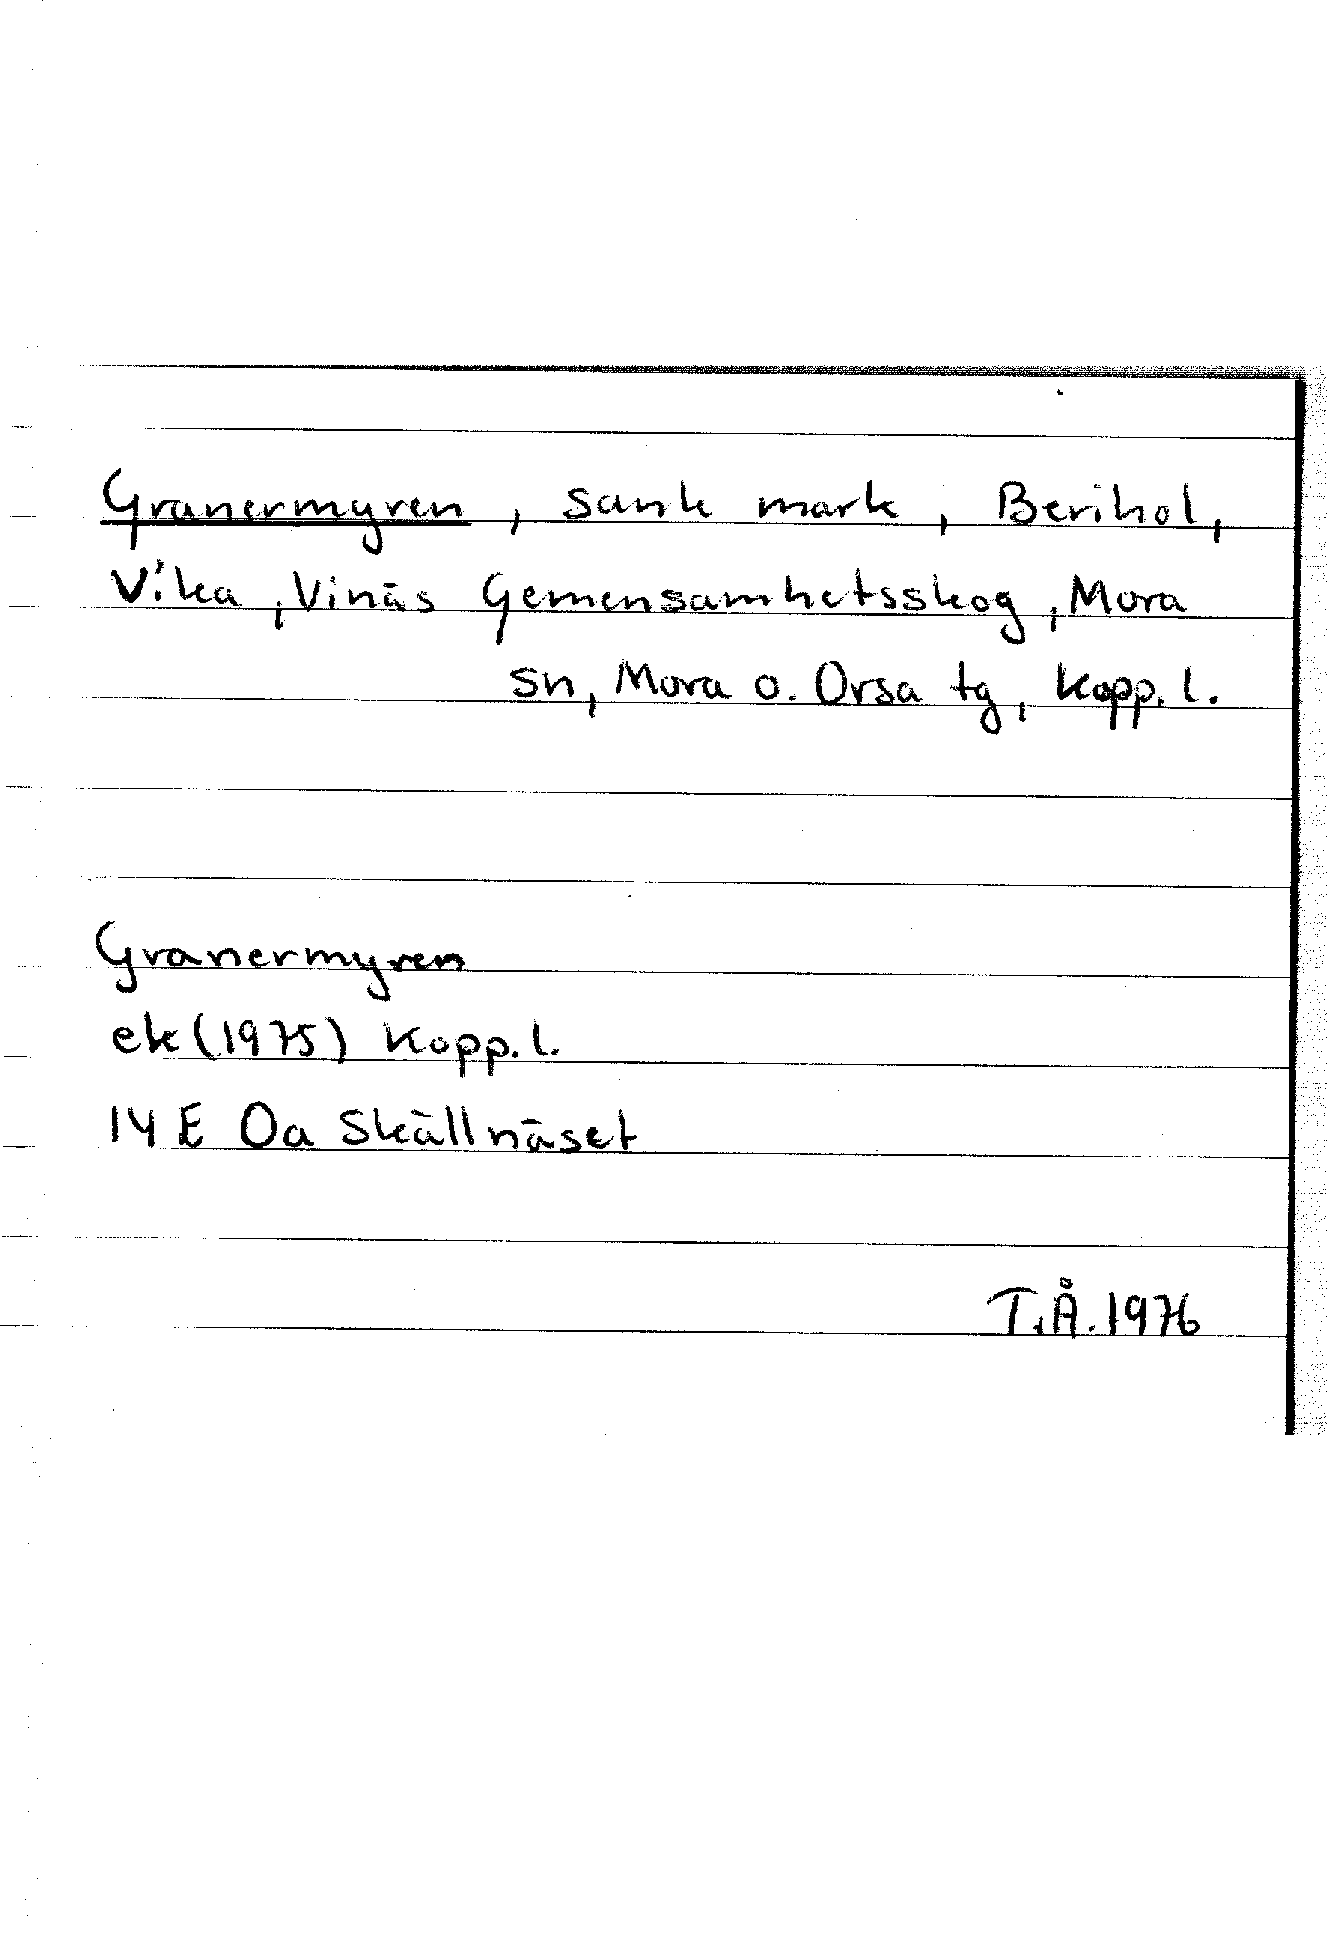 Granermyren, sank mark, Berikol,
Vika, Vinäs Gemensamhetsskog, Mora
sn, Mora o. Orsa tg, Kopp. l.
Granermyren
ek (1975) Kopp. l.
14 E 0a Skällnäset
T.Å. 1976